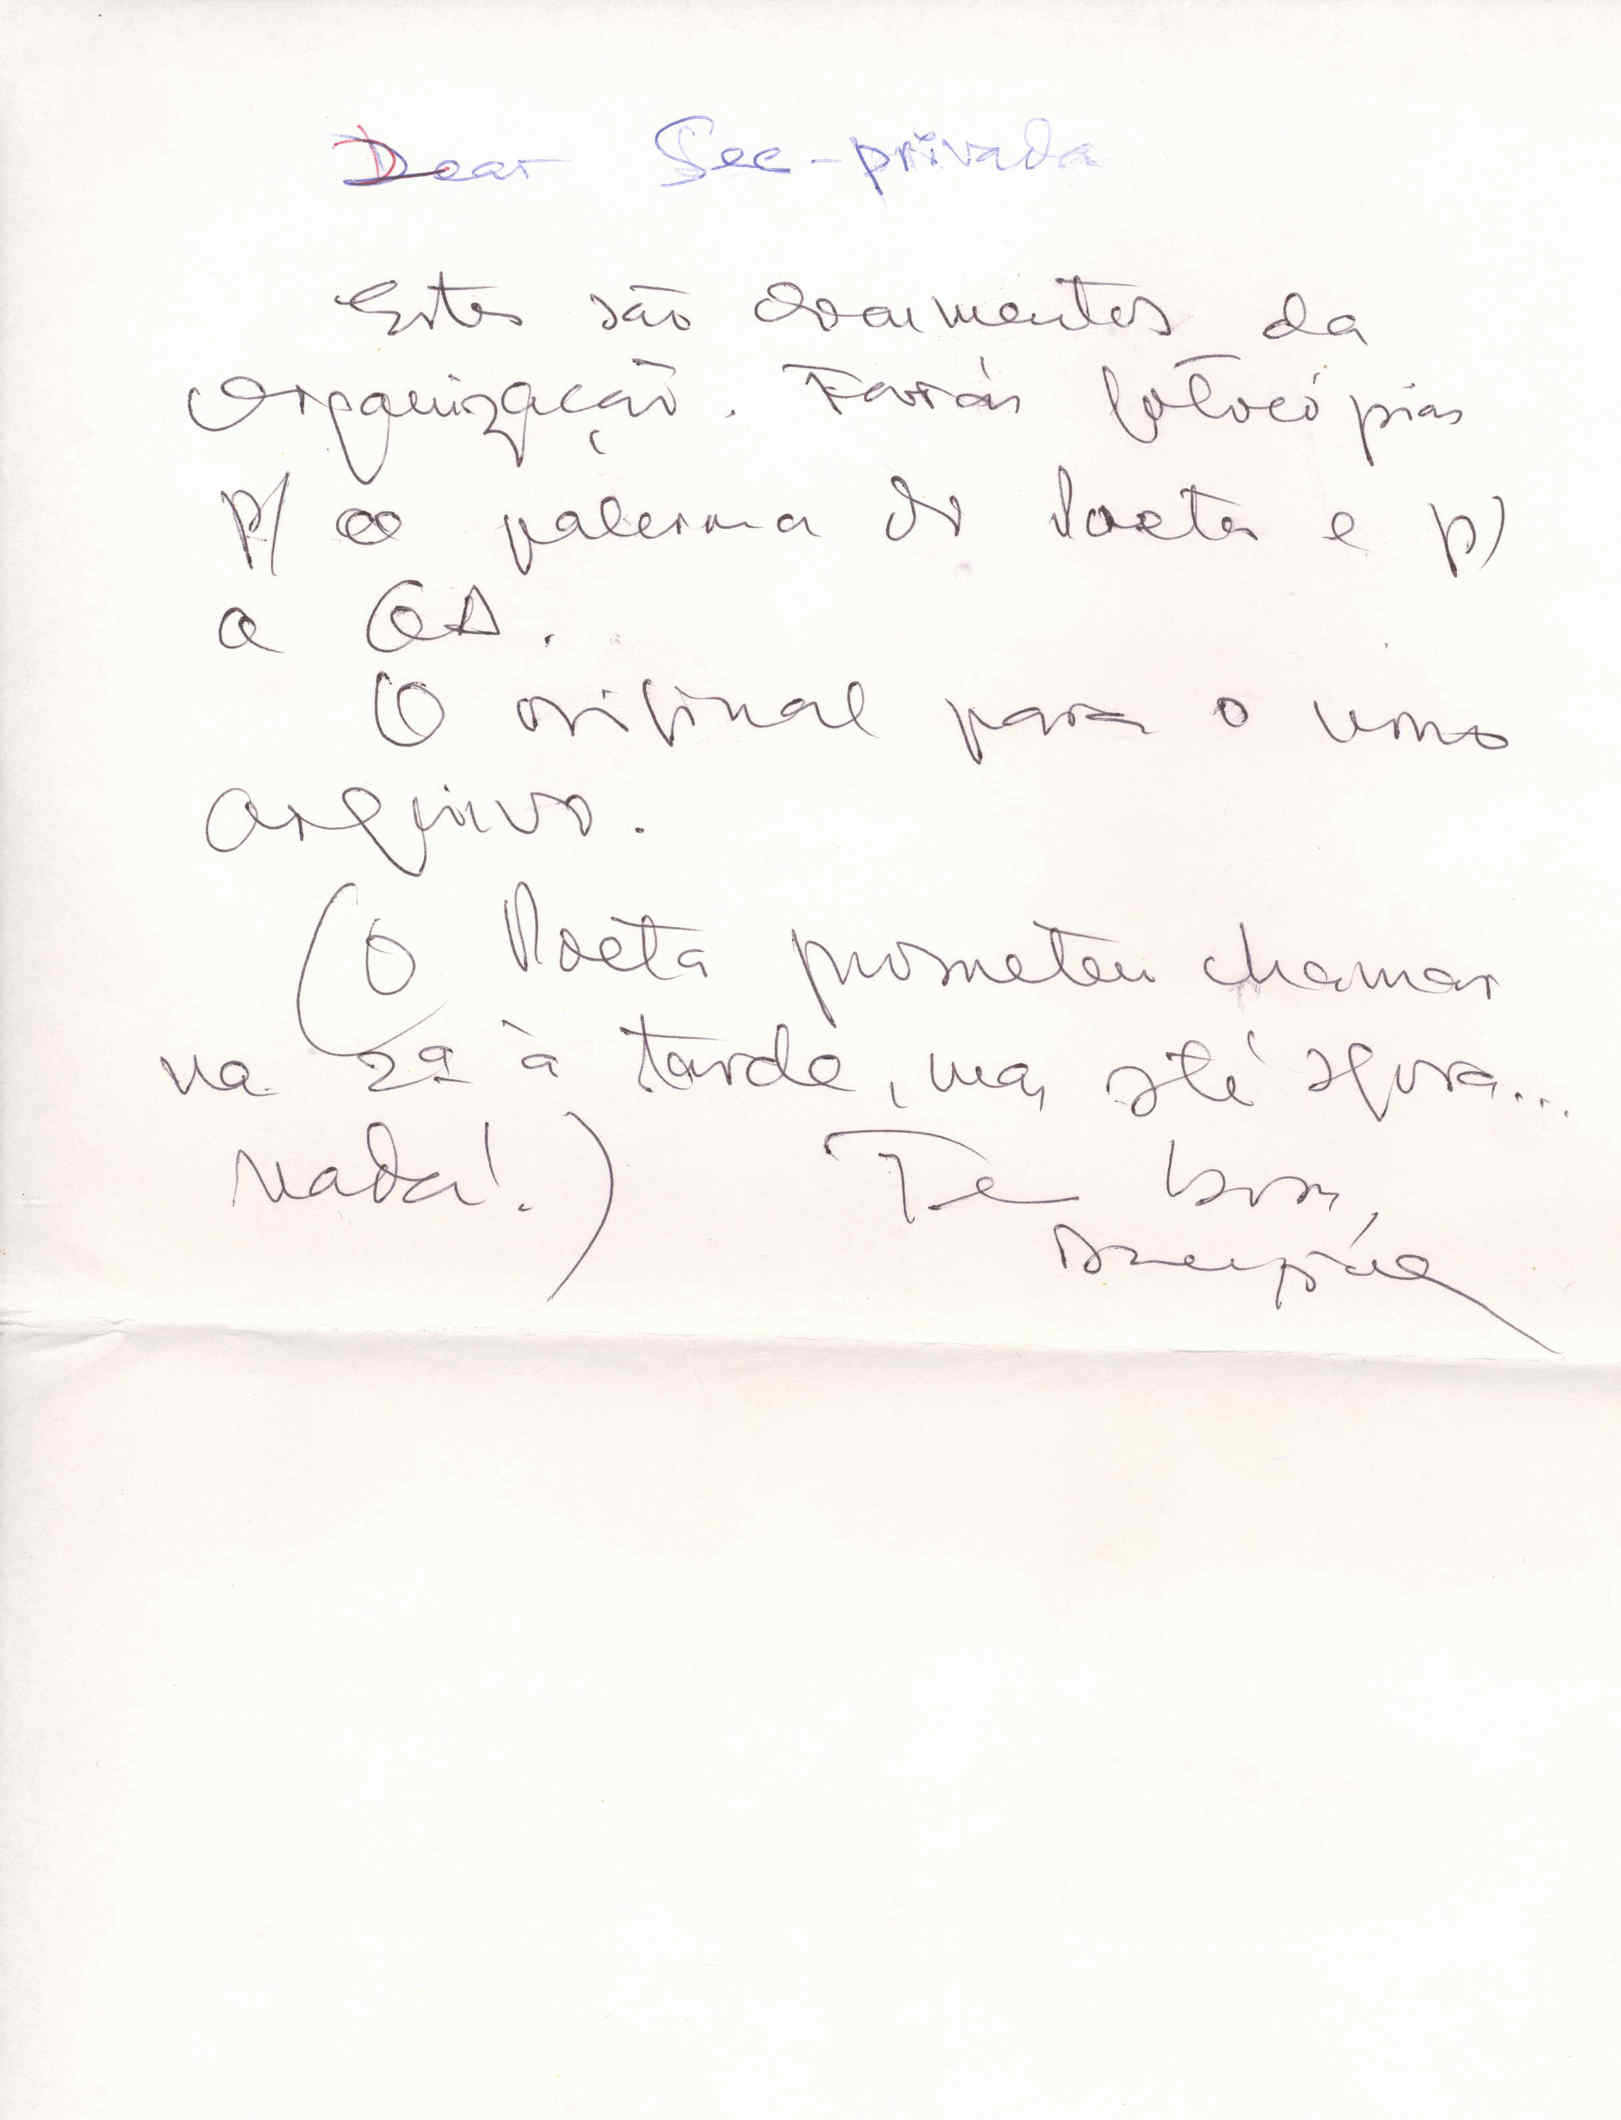 Dear Sec-privada
Estes são documentos da
Organização. Farás fotocópias
p/ o palerma do Poeta e p/
a GA.
O original para o nosso
arquivo.
(O Poeta prometeu chamar
na 2ª à tarde, mas até agora...
nada!.) Te